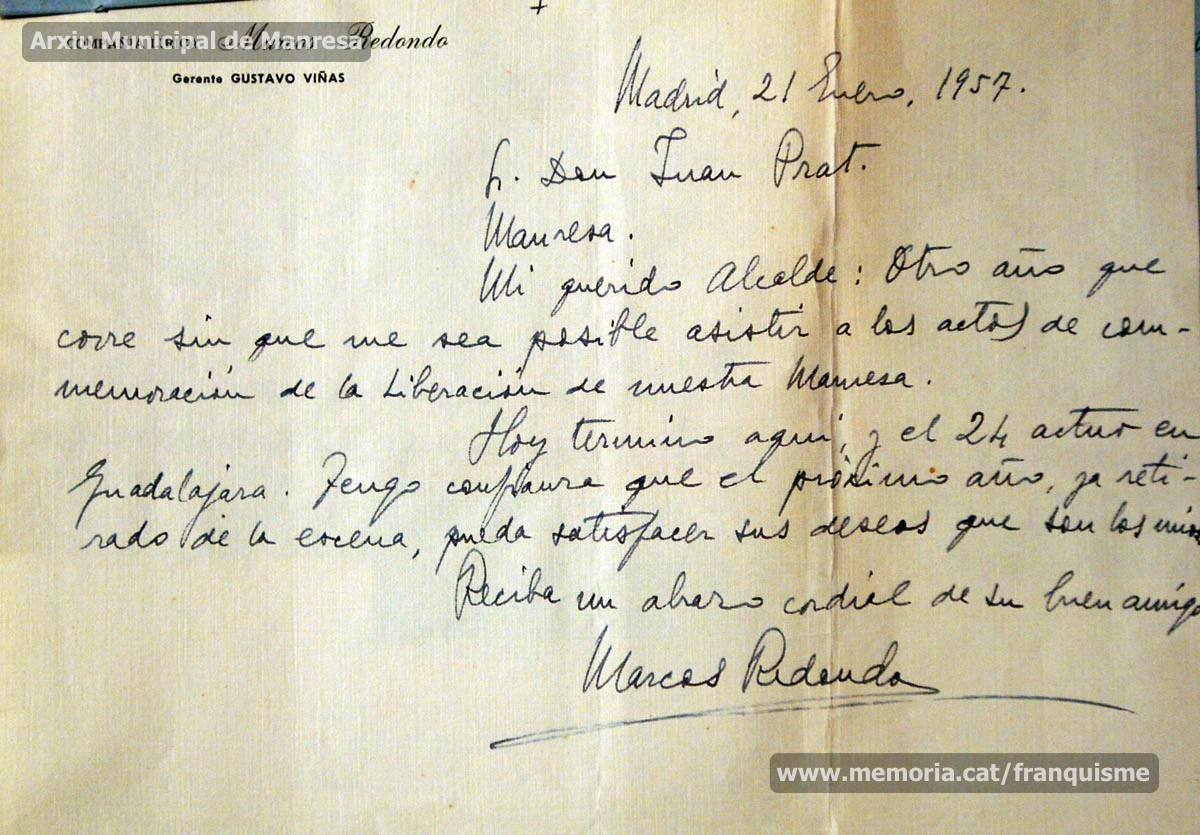 Arxiu Municipal de Manresa
Marcos Redondo
Gerente GUSTAVO VIÑAS
Madrid, 21 Enero, 1957.
Sr. Don Juan Prat.
Manresa.
Mi querido Alcalde: Otro año que
corre sin que me sea posible asistir a los actos de com-
memoración de la Liberación de nuestra Manresa.
Hoy termino aquí, y el 24 actuo en
Guadalajara. Tengo confianza que el próximo año, ya reti-
rado de la escena, pueda satisfacer sus deseos que son los mios
Reciba un abrazo cordial de su buen amigo
Marcos Redondo
www.memoria.cat/franquisme